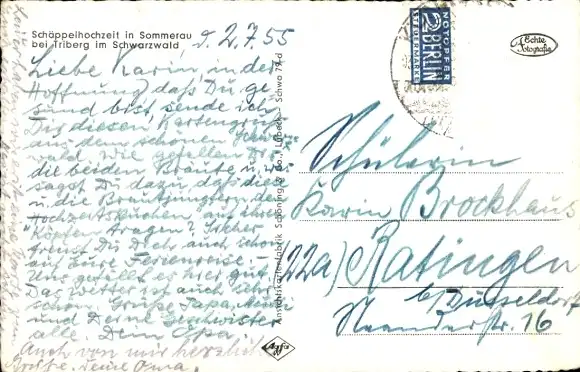 Schäppelhochzeit in Sommerau
bei Triberg im Schwarzwald
d. 2.7.55
Liebe Karin, in der
Hoffnung, daß Du ge-
sund bist, sende ich
Dir diesen Kartengruß
aus dem schönen Schwarz-
wald. Wie gefallen Dir
die beiden Bräute u. was
sagst Du dazu, daß die
u. die Bräutjungfern den
Hochzeitskuchen auf ihren
Köpfen tragen? Sicher
freust Du Dich auch schon
auf Eure Ferienreise.
Uns gefällt es hier gut.
Das Wetter ist auch sehr
schön. Grüße Papa, Mutti
und Deine Geschwister
alle. Dein Opa.
Auch von mir herzliche
Grüße. Deine Oma.
Ansichtskartenfabrik Schöning & Co., Lübeck
Schwa 79 d
NOTOPFER
2 BERLIN
STEUERMARKE
Echte
Fotografie
Schülerin
Karin Brockhaus
22a) Ratingen
b/Düsseldorf
Neanderstr. 16
Agfa